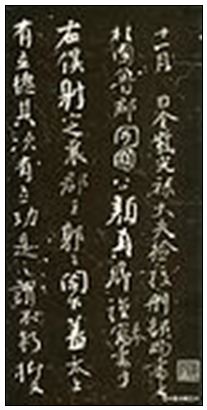 十一月　日金紫光祿大夫檢校刑部尚書上
柱國魯郡開國公顏真卿謹寓書于
右僕射定襄郡王郭公閣下蓋太上
有立德其次有立功是之謂不朽抑